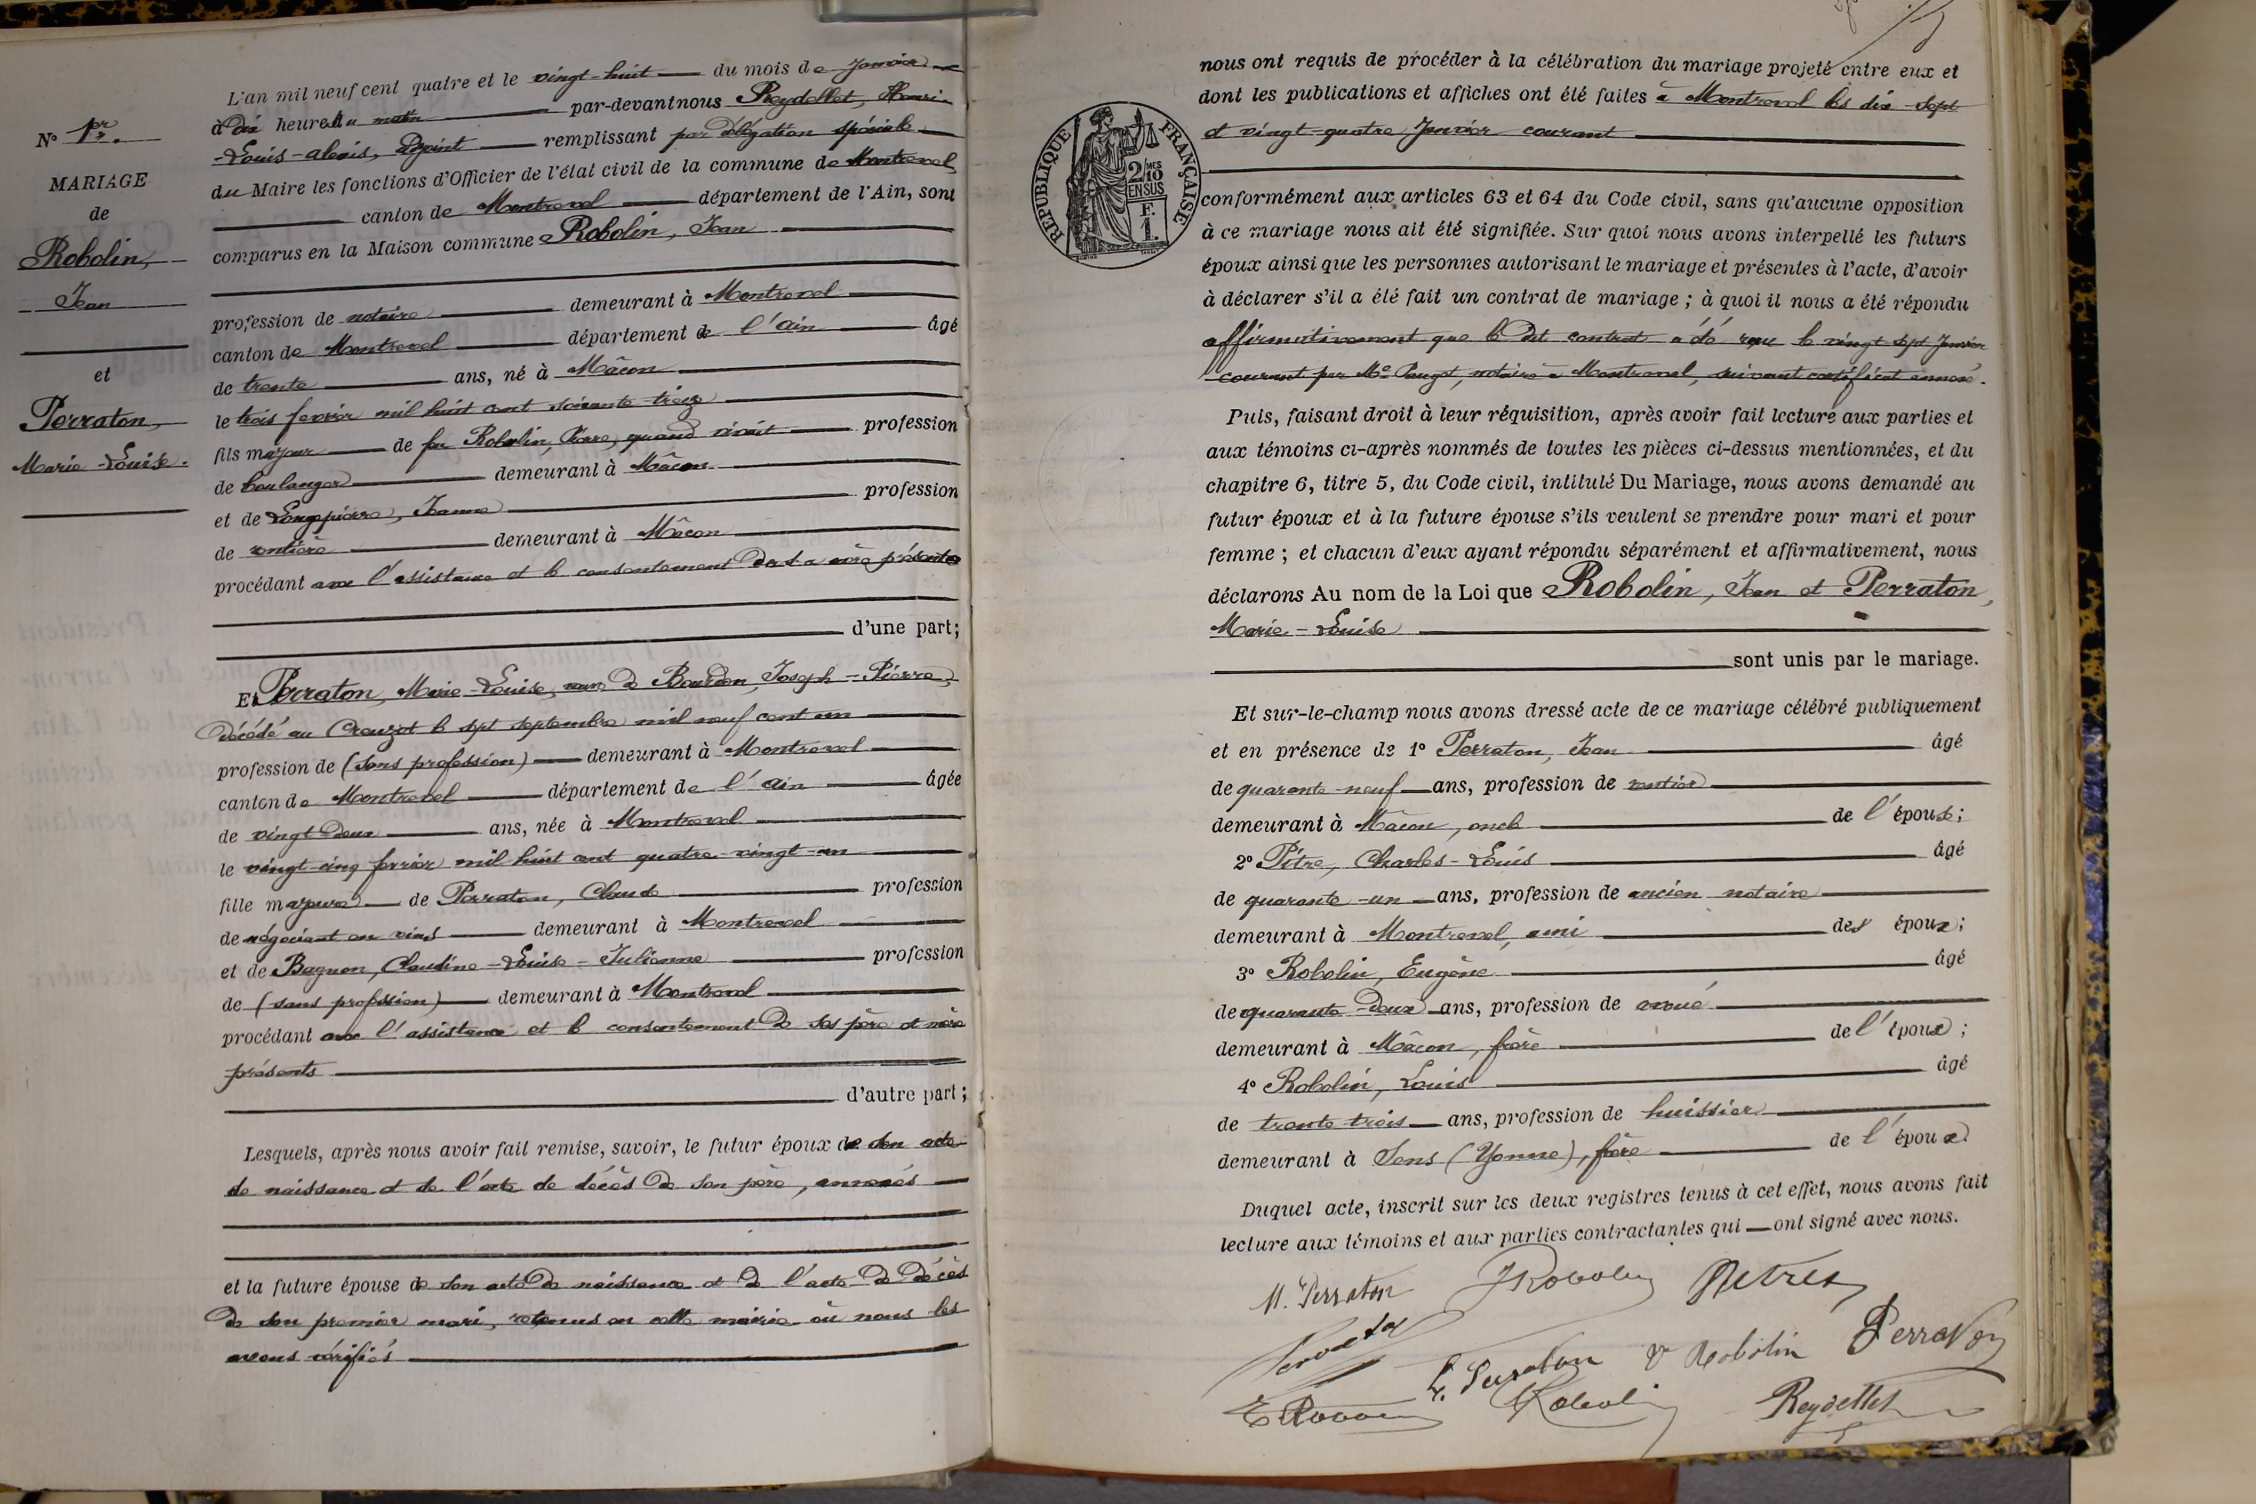 L'an mil neuf cent quatre et le vingt-huit du mois de Janvier
à dix heures du matin par-devant nous Reydellet, Henri-
Louis-alexis, Adjoint remplissant par délégation spéciale
du Maire les fonctions d'Officier de l'état civil de la commune de Montrevel
canton de Montrevel département de l'Ain, sont
comparus en la Maison commune Robolin, Jean
profession de notaire demeurant à Montrevel
canton de Montrevel département de l'Ain âgé
de trente ans, né à Mâcon
le trois fevrier mil huit cent soixante-treize
fils majeur de feu Robolin, Pierre, quand vivait profession
de boulanger demeurant à Mâcon
et de Longepierre, Jeanne profession
de rentière demeurant à Mâcon
procédant avec l'assistance et le consentement de sa mère présente
d'une part;
Et Perraton, Marie-Louise, veuve de Bourdon, Joseph-Pierre,
décédé au Creuzot le sept septembre mil neuf cent un
profession de (sans profession) demeurant à Montrevel
canton de Montrevel département de l'Ain âgée
de vingt-deux ans, née à Montrevel
le vingt-cinq février mil huit cent quatre-vingt-un
fille majeure de Perraton, Claude profession
de négociant en vins demeurant à Montrevel
et de Baguen, Claudine-Louise-Julienne profession
de (sans profession) demeurant à Montrevel
procédant avec l'assistance et le consentement de ses père et mère
présents
d'autre part;
Lesquels, après nous avoir fait remise, savoir, le futur époux de son acte
de naissance et de l'acte de décès de son père, annexés
et la future épouse de son acte de naissance et de l'acte de décès
de son premier mari, retenus en cette mairie où nous les
avons vérifiés
No 1er.
MARIAGE
de
Robolin,
Jean
et
Perraton,
Marie-Louise.
nous ont requis de procéder à la célébration du mariage projeté entre eux et
dont les publications et affiches ont été faites à Montrevel les dix-sept
et vingt-quatre Janvier courant
RÉPUBLIQUE FRANÇAISE
2/10
MES
EN SUS
F.
1.
conformément aux articles 63 et 64 du Code civil, sans qu'aucune opposition
à ce mariage nous ait été signifiée. Sur quoi nous avons interpellé les futurs
époux ainsi que les personnes autorisant le mariage et présentes à l'acte, d'avoir
à déclarer s'il a été fait un contrat de mariage; à quoi il nous a été répondu
affirmativement que le dit contrat a été reçu le vingt sept Janvier
courant par Me Pauget, notaire à Montrevel, suivant certificat annexé.
Puis, faisant droit à leur réquisition, après avoir fait lecture aux parties et
aux témoins ci-après nommés de toutes les pièces ci-dessus mentionnées, et du
chapitre 6, titre 5, du Code civil, intitulé Du Mariage, nous avons demandé au
futur époux et à la future épouse s'ils veulent se prendre pour mari et pour
femme; et chacun d'eux ayant répondu séparément et affirmativement, nous
déclarons Au nom de la Loi que Robolin, Jean et Perraton,
Marie-Louise
sont unis par le mariage.
Et sur-le-champ nous avons dressé acte de ce mariage célébré publiquement
et en présence de 1o Perraton, Jean âgé
de quarante-neuf ans, profession de rentier
demeurant à Mâcon, oncle de l'épouse;
2o Pitre, Charles-Louis âgé
de quarante-un ans, profession de ancien notaire
demeurant à Montrevel, ami des époux;
3o Robolin, Eugène âgé
de quarante-deux ans, profession de avoué
demeurant à Mâcon, frère de l'époux;
4o Robolin, Louis âgé
de trente trois ans, profession de huissier
demeurant à Sens (Yonne), frère de l'époux
Duquel acte, inscrit sur les deux registres tenus à cet effet, nous avons fait
lecture aux témoins et aux parties contractantes qui ont signé avec nous.
M. Perraton JRobolin
L. Perraton Ve Robolin Perraton
Robolin Reydellet